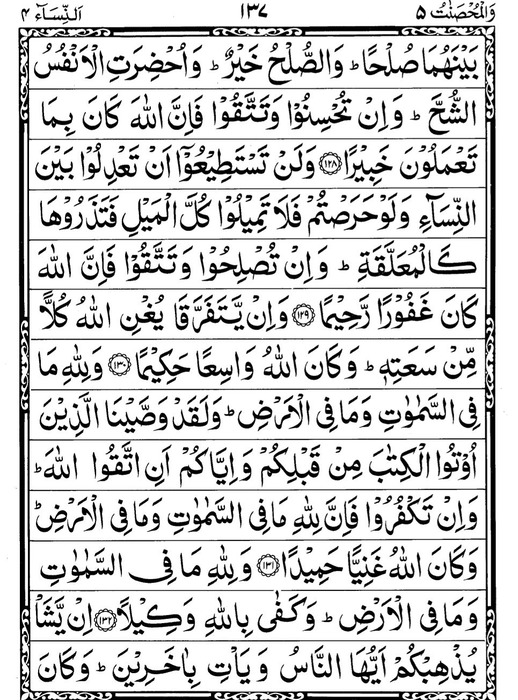 وَالْمُحْصَنٰتُ ٥ ١٣٧ اَلنِّسَآء ٤
بَيْنَهُمَا صُلْحًا ؕ وَالصُّلْحُ خَيْرٌ ؕ وَاُحْضِرَتِ الْاَنْفُسُ
الشُّحَّ ؕ وَاِنْ تُحْسِنُوْا وَتَتَّقُوْا فَاِنَّ اللّٰهَ كَانَ بِمَا
تَعْمَلُوْنَ خَبِيْرًا ﴿١٢٨﴾ وَلَنْ تَسْتَطِيْعُوْۤا اَنْ تَعْدِلُوْا بَيْنَ
النِّسَآءِ وَلَوْ حَرَصْتُمْ فَلَا تَمِيْلُوْا كُلَّ الْمَيْلِ فَتَذَرُوْهَا
كَالْمُعَلَّقَةِ ؕ وَاِنْ تُصْلِحُوْا وَتَتَّقُوْا فَاِنَّ اللّٰهَ
كَانَ غَفُوْرًا رَّحِيْمًا ﴿١٢٩﴾ وَاِنْ يَّتَفَرَّقَا يُغْنِ اللّٰهُ كُلًّا
مِّنْ سَعَتِهٖ ؕ وَكَانَ اللّٰهُ وَاسِعًا حَكِيْمًا ﴿١٣٠﴾ وَلِلّٰهِ مَا
فِى السَّمٰوٰتِ وَمَا فِى الْاَرْضِ ؕ وَلَقَدْ وَصَّيْنَا الَّذِيْنَ
اُوْتُوا الْكِتٰبَ مِنْ قَبْلِكُمْ وَاِيَّاكُمْ اَنِ اتَّقُوا اللّٰهَ ؕ
وَاِنْ تَكْفُرُوْا فَاِنَّ لِلّٰهِ مَا فِى السَّمٰوٰتِ وَمَا فِى الْاَرْضِ ؕ
وَكَانَ اللّٰهُ غَنِيًّا حَمِيْدًا ﴿١٣١﴾ وَلِلّٰهِ مَا فِى السَّمٰوٰتِ
وَمَا فِى الْاَرْضِ ؕ وَكَفٰى بِاللّٰهِ وَكِيْلًا ﴿١٣٢﴾ اِنْ يَّشَاْ
يُذْهِبْكُمْ اَيُّهَا النَّاسُ وَيَاْتِ بِاٰخَرِيْنَ ؕ وَكَانَ